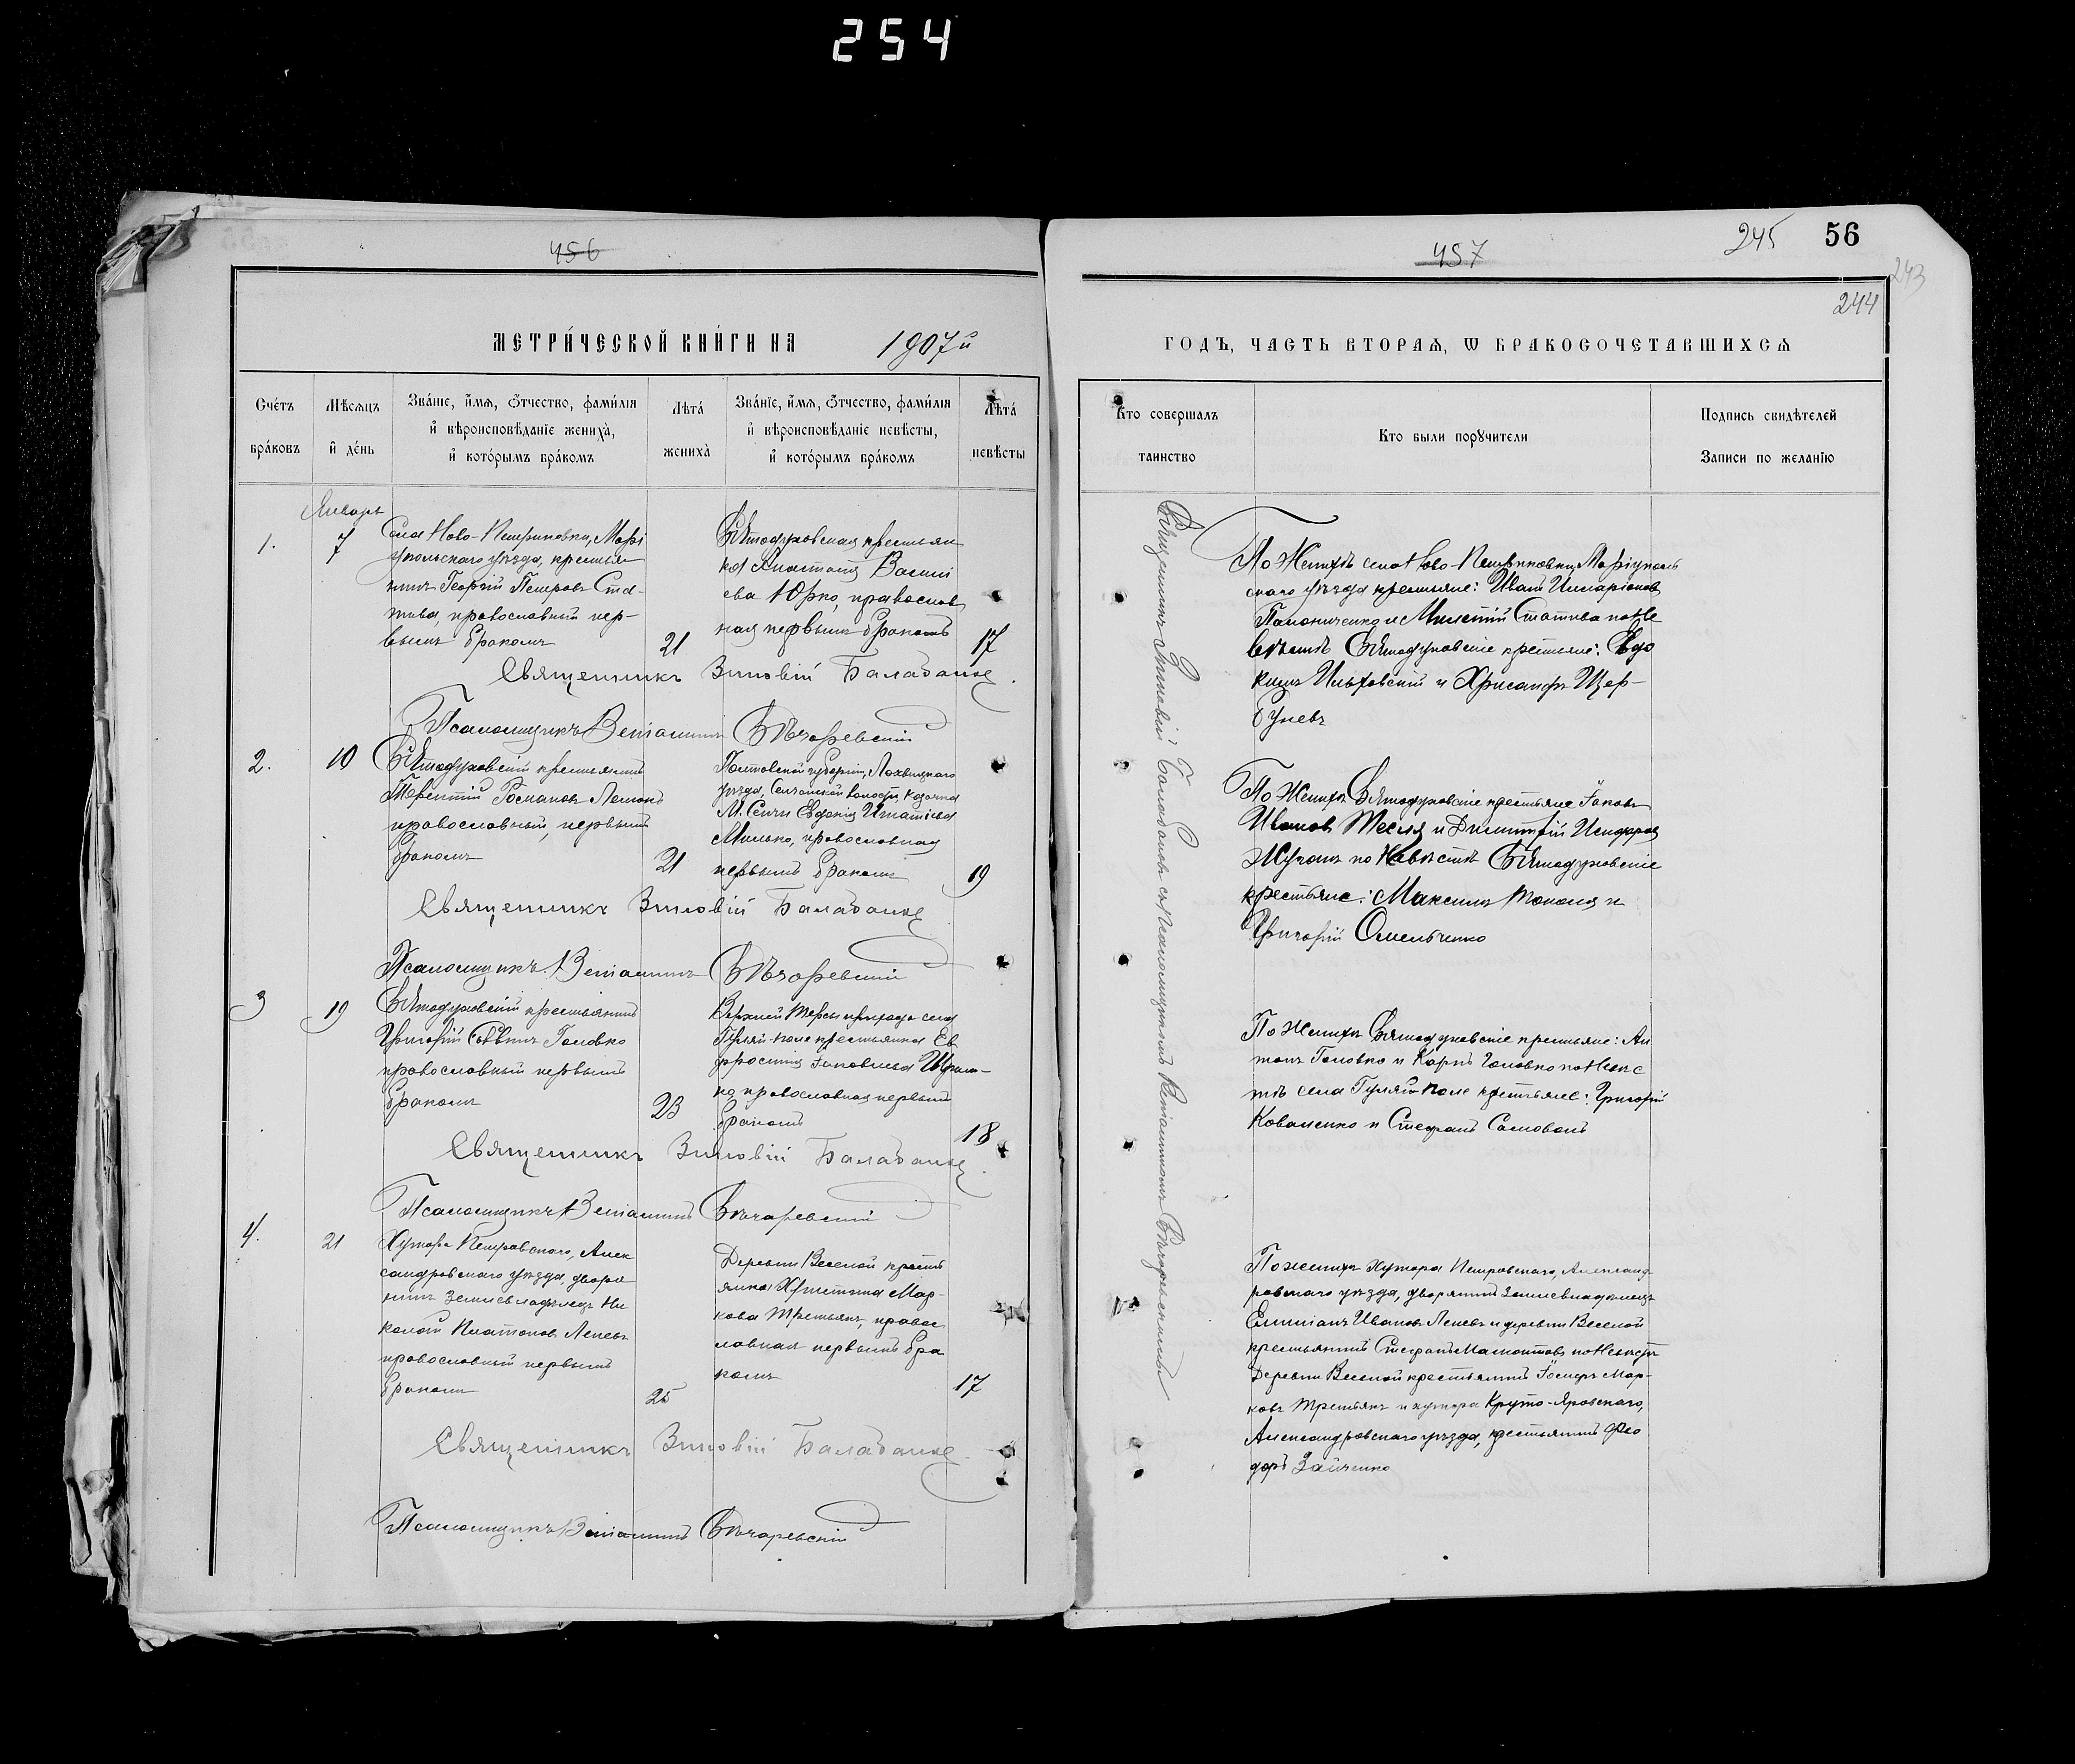 254
456
МЕТРИ́ЧЕСКОЙ КНИ́ГИ НА 1907й
Сче́тъ бра́ковъ
Мѣсяцъ и҆ де́нь
Зва́нїе, и҆́мѧ, ѻ҆́тчество, фами́лїѧ
и҆ вѣроисповѣ́данїе жениха̀,
и҆ кото́рымъ бра́комъ
Лѣта́ жениха̀
Зва́нїе, и҆́мѧ, ѻ҆́тчество, фами́лїѧ
и҆ вѣроисповѣ́данїе невѣ́сты,
и҆ кото́рымъ бра́комъ
Лѣта́ невѣ́сты
Январь
1.
7
Села Ново-Петриковки, Марі
упольскаго уѣзда, крестья
нинъ Георгій Петровъ Ста-
тива, православный пер-
вымъ бракомъ
21
Святодуховская крестьян
ка Анастасія Васили
ева Юрко, православ
ная первымъ бракомъ
17
Священникъ Зиновій Балабановъ
Псаломщикъ Веніаминъ Вѣчоревскій
2.
10
Святодуховскій крестьянинъ
Терентій Романовъ
православный, первымъ
бракомъ
21
Полтавской губерніи, Лохвицкаго
уѣзда, Сенчанской волости, козачка
М. Сенчи Евдокія Игнатіева
Милько, православная
первымъ бракомъ
19
Священникъ Зиновій Балабановъ
Псаломщикъ Веніаминъ Вѣчоревскій
3
19
Святодуховскій крестьянинъ
Григорій Саввинъ Головко
православный первымъ
бракомъ
23
Верхней Терсы прихода села
Гуляй-поле крестьянка Ев
фросинія Іаковлева
православная первымъ
бракомъ
18
Священникъ Зиновій Балабановъ
Псаломщикъ Веніаминъ Вѣчоревскій
4.
21
Хутора Петровскаго, Алек
сандровскаго уѣзда, дворя
нинъ землевладѣлецъ Ни
колай Платоновъ Лепевъ
православный первымъ
бракомъ
25
Деревни Веселой кресть
янка Христина Мар-
кова Третьякъ, правос
лавная первымъ бра
комъ
17
Священникъ Зиновій Балабановъ
Псаломщикъ Веніаминъ Вѣчоревскій
457
245
56
243
244
ГОДЪ, ЧАСТЬ ВТОРАѦ, Ѡ БРАКОСОЧЕТАВШИХСѦ
Кто совершалъ таинство
Кто были порꙋчители
Подпись свидѣтелей
Записи по желанїю
Священникъ Зиновій Балабановъ съ псаломщикомъ Веніаминомъ Вѣчоревскимъ
По Женихѣ села Ново-Петриковки, Маріуполь
скаго уѣзда крестьяне: Иванъ Иларіоновъ
и Статива по Не
вѣстѣ Святодуховскіе крестьяне: Евдо
кимъ Ильховскій и Хрисанфъ Щер-
буневъ
По Женихѣ Святодуховскіе крестьяне Іаковъ
Ивановъ Тесля и Димитрій Исидоровъ
по Невѣстѣ Святодуховскіе
крестьяне: Максимъ Тополя и
Григорій Омельченко
По Женихѣ Святодуховскіе крестьяне: Ан
тонъ Головко и Карпъ Головко по Невѣс
тѣ села Гуляй поле крестьяне: Григорій
Коваленко и Стефанъ
По женихѣ хутора Петровскаго, Александ
ровскаго уѣзда, дворянинъ землевладѣлецъ
Ивановъ Лепевъ и деревни Веселой
крестьянинъ Стефанъ Мамонтовъ по Невѣстѣ
Деревни Веселой крестьянинъ Іосифъ Мар-
ковъ Третьякъ и хутора Круто-Яровскаго,
Александровскаго уѣзда, крестьянинъ Фео
доръ Зайченко